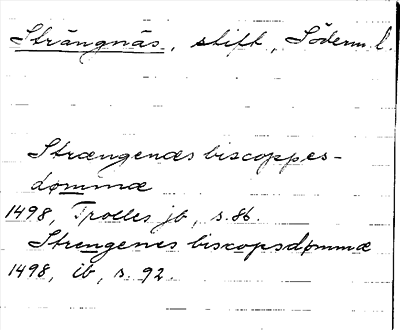 Strängnäs, stift, Söderm. l.
Strængenæs biscoppes-
dømmæ
1498, Trolles jb, s. 86.
Strengenes biscopsdømmæ
1498, ib, s. 92.